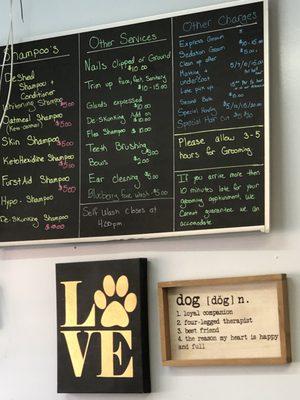 Shampoo's
DeShed
Shampoo +
Conditioner
Whitening Shampoo
$5.00
Oatmeal Shampoo
$5.00
Skin Shampoo
$5.00
KetoHexidine Shampoo
$5.00
First Aid Shampoo
$5.00
Hypo- Shampoo
De-Skunking Shampoo
$10.00
Other Services
Nails Clipped or Ground
$10.00
Trim up face, feet, Sanitary
$10-15.00
Glands expressed
$10.00
De-Skunking Add on
$10.00
Flea Shampoo $15.00
Teeth Brushing
$10.00
Bows
$2.00
Ear cleaning
$5.00
Blueberry face wash $5.00
Self Wash closes at
4:00pm
Other Charges
Express Groom
Sedation Groom
Clean up after
Matting +
undercoat
Late pick up
Second Bath
Special Handling
Special Hair Cut
Please allow 3-5
hours for Grooming
If you arrive more then
10 minutes late for your
grooming appointment, We
Cannot guarantee we can
accomodate
LOVE
dog [dög] n.
1. loyal companion
2. four-legged therapist
3. best friend
4. the reason my heart is happy
and full